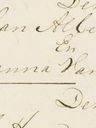 Den
an Albe
En
anna Van
Den